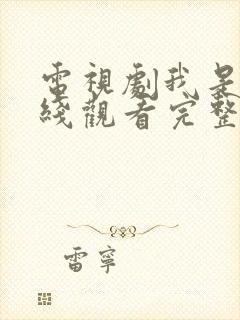 電視劇我是
綫觀看完整
雷寧